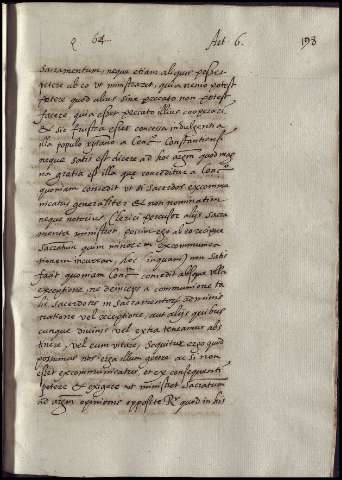 q 64. Art. 6. 193
sacramentum, neque etiam aliquis posset
petere ab eo ut ministraret, quia nemo potest
petere quod alius sine peccato non potest
facere quia esset peccato illius cooperari
& sic frustra esset concessa indulgentia
illa populo xpiano a Conc. Constantiensi
neque satis est dicere ad hoc argm quod mag
na gratia est illa que conceditur a Conco
quoniam concedit ut si sacerdos excommu
nicatus generaliter & non nominatim
neque notorius Clerici percusor alijs sacra
menta ministret, possim ego ab eo recipere
Sacratum quin minorem excommunica
tionem incurram, hec inquam non satis
fatit quoniam Concm concedit absque ulla
exceptione, ne deinceps a communione ta
lis sacerdotis in sacramentorum adminis
tratione vel receptione, aut alijs quibus
cunque divinis vel extra teneamur abs
tinere, vel eum vitare, sequitur ergo quod
possimus nos erga illum gerere ac si non
esset excommunicatus et ex consequenti
petere & exigere ut ministret Sacratum
ad argm opinionis opposite Rr quod in his